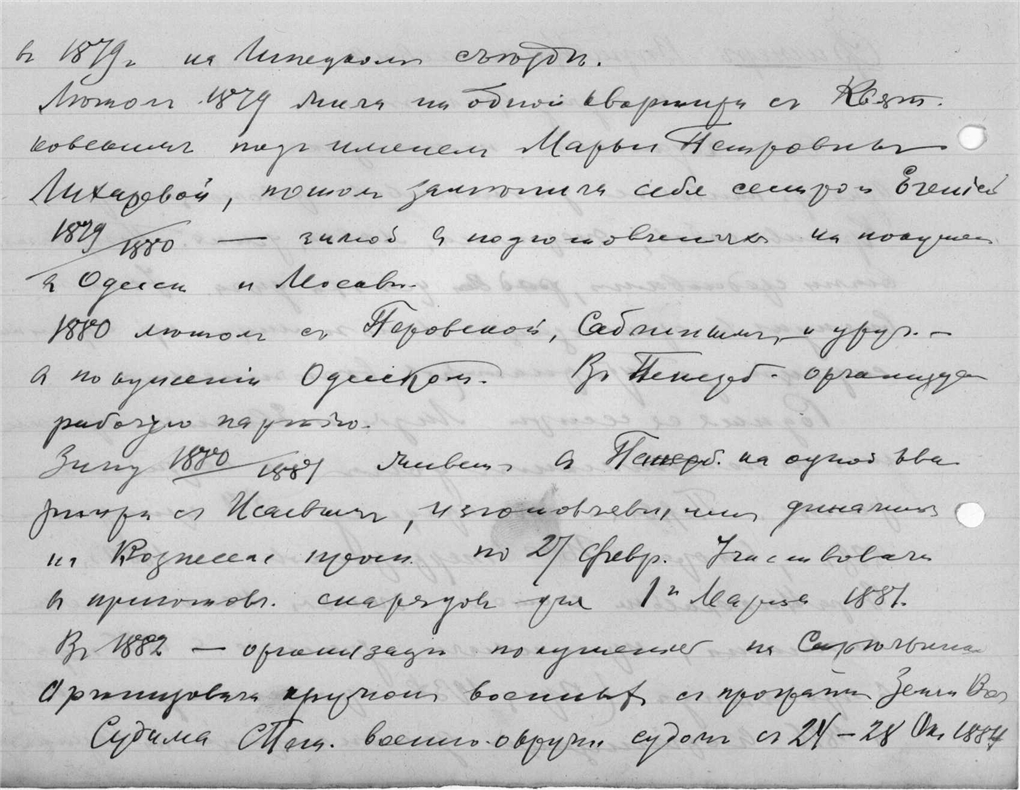 в 1879 г. на Липецком съезде.
Летом 1879 жила на одной квартире с Квят-
ковским под именем Марьи Петровны
Лихаревой, потом заменила себя сестрой Евгенией
1879/1880 — зимой в подготовлениях на покушен
в Одессе и Москве.
1880 летом с Перовской, Саблиным и друг. —
в покушении Одесском. В Петерб. организует
рабочую партию.
Зиму 1880/1881 живет в Петерб. на одной ква
ртире с Исаевым, изготовлявшим динамит
на Вознесенс просп. по 27 февр. Участвовала
в приготов. снарядов для 1го Марта 1881.
В 1882 — организация покушения на Стрельник
Организовала кружок военных с програм Земли Вол
Судима Пет. военно-окружн судом с 24 — 28 Ок. 1884